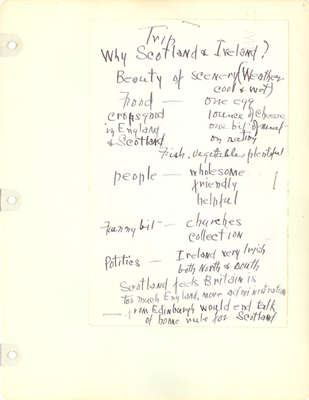 Trip
Why Scotland & Ireland?
Beauty of scenery (Weather
cool & wet)
Food — one egg
crops good 1 ounce of cheese
in England one bit of meat
& Scotland on ration
Fish, vegetables plentiful
people — wholesome
friendly
helpful
Funny bit — churches
collection
Politics — Ireland very Irish
both North & South
Scotland feels Britain is
too much England, more administration
from Edinburgh would end talk
of home rule for Scotland